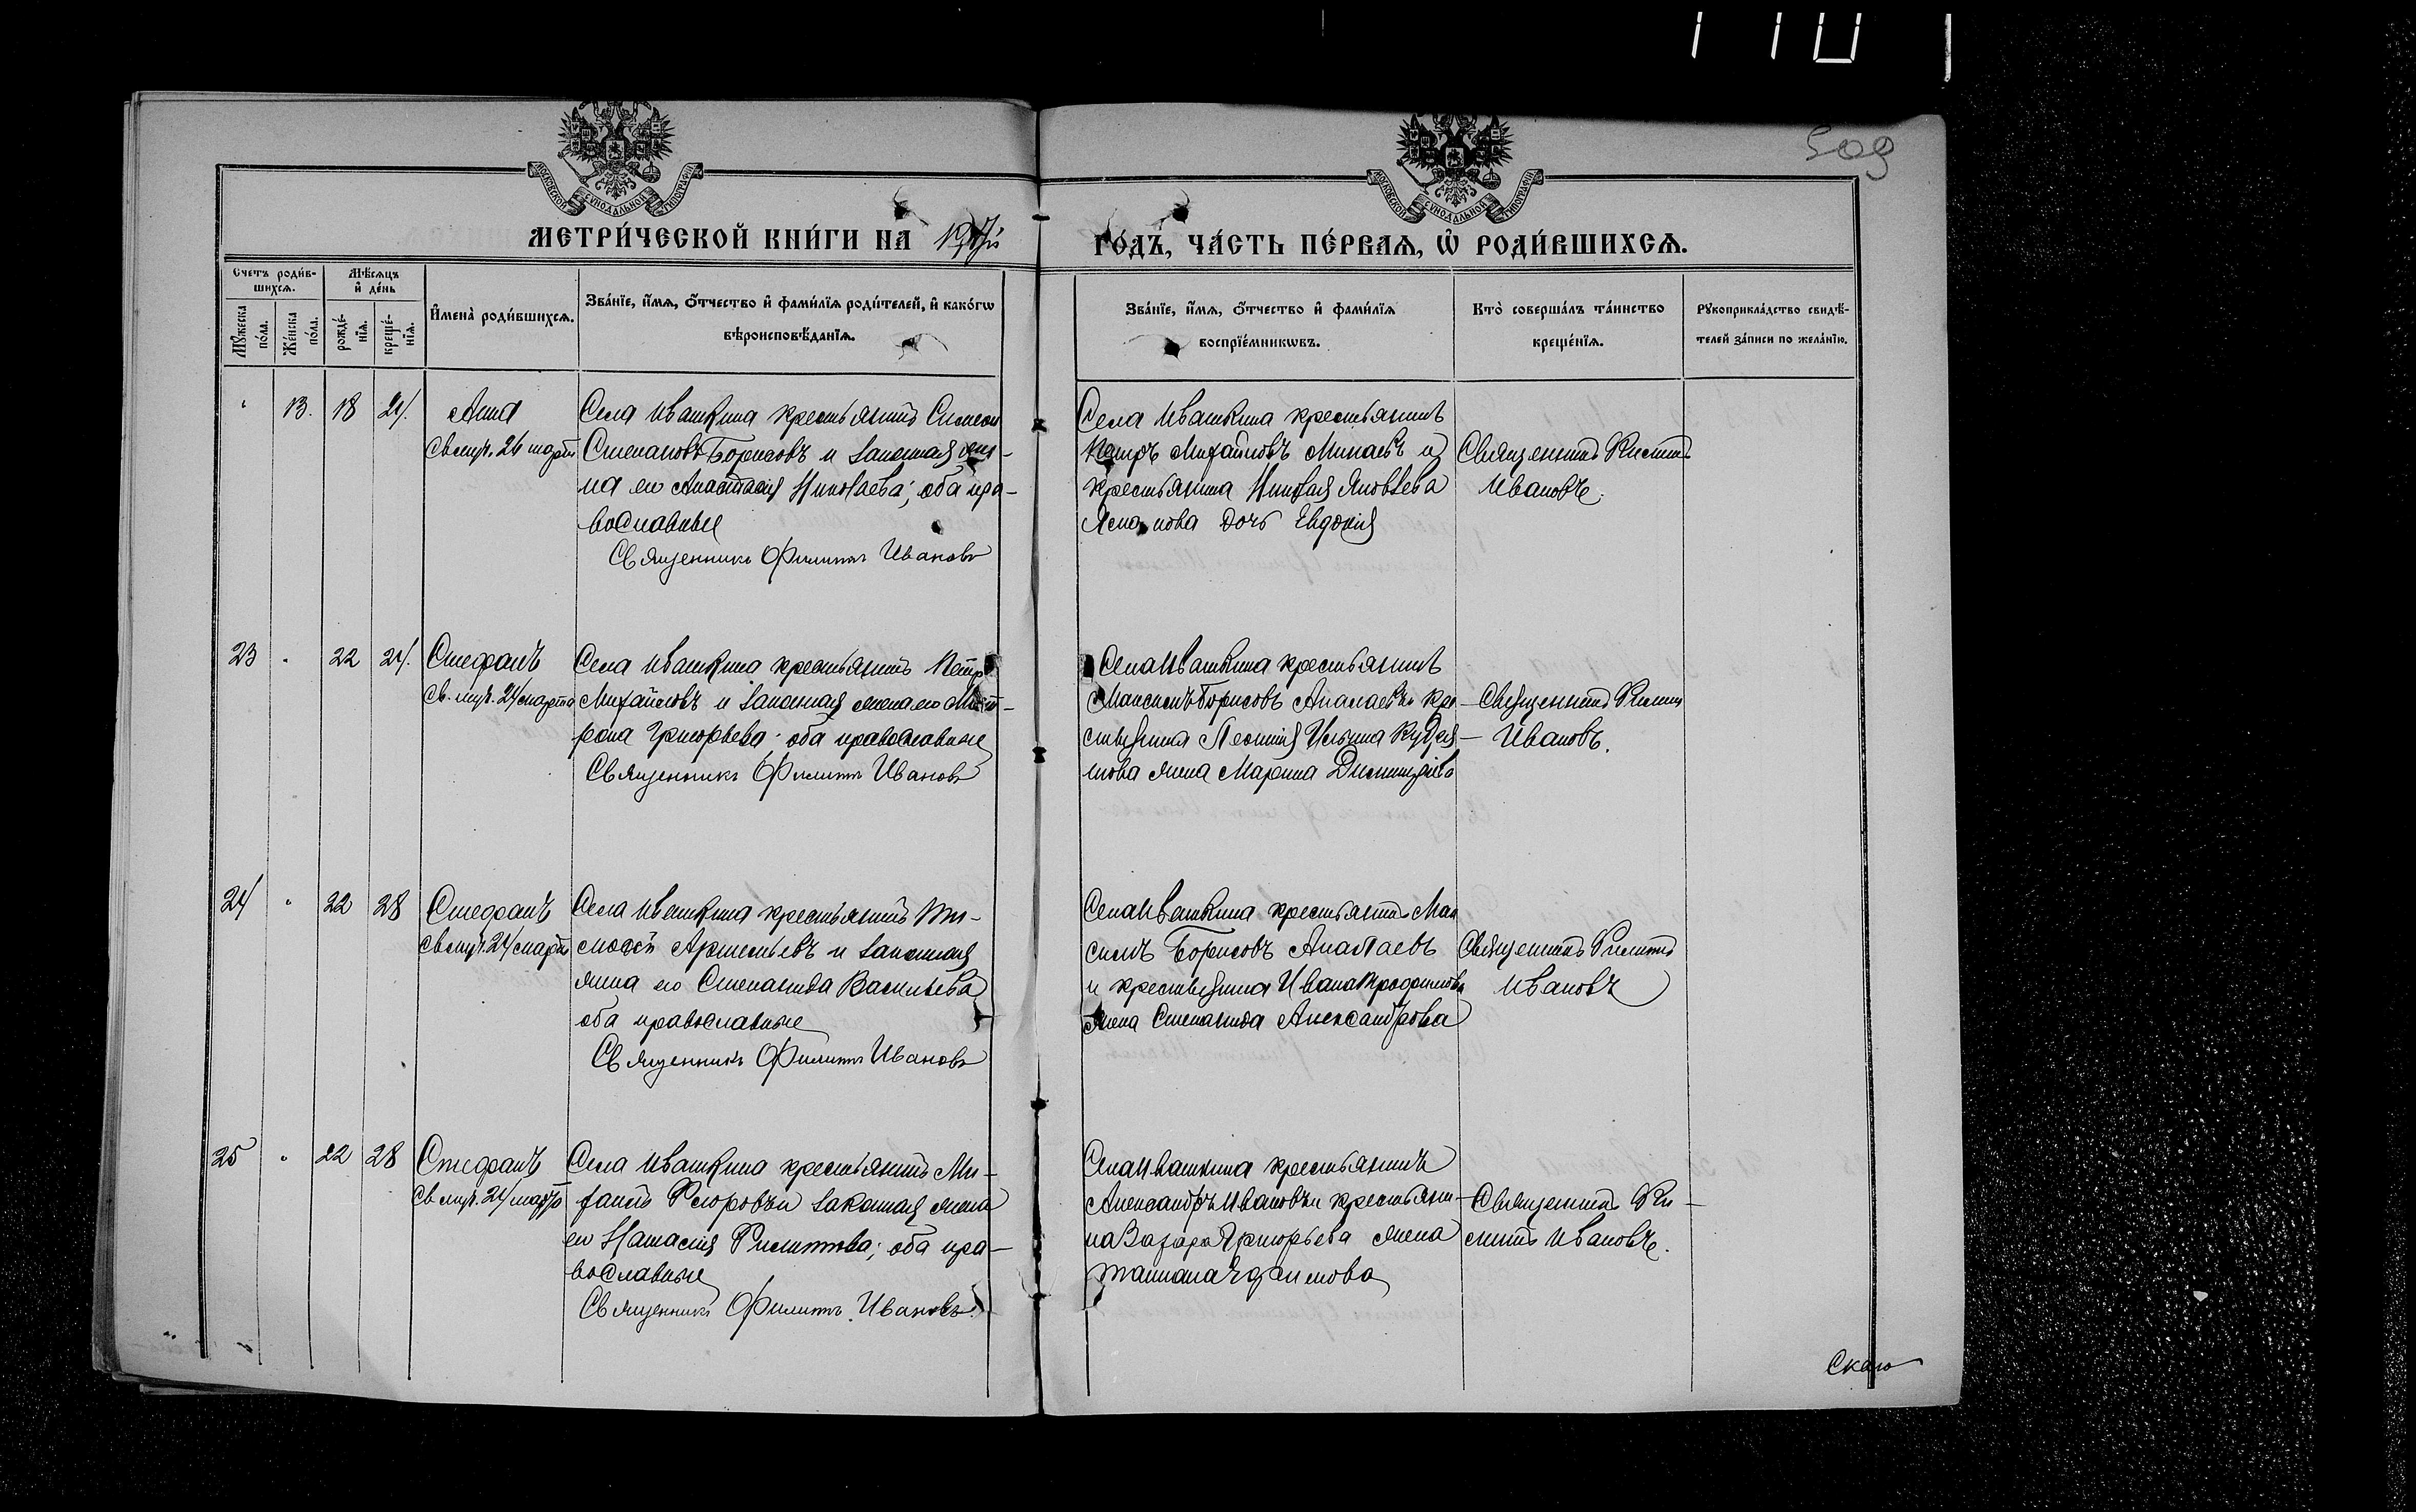 509
МОСКОВСКОЙ СѴНОДАЛЬНОЙ ТИПОГРАФІИ
МОСКОВСКОЙ СѴНОДАЛЬНОЙ ТИПОГРАФІИ
МЕТРИ́ЧЕСКОЙ КНИ́ГИ НА
ГО́ДЪ, ЧА́СТЬ ПЕ́РВАѦ, Ѡ҆ РОДИ́ВШИХСѦ.
Счетъ роди́в-
шихсѧ.
Мѣ́сѧцъ
и҆ де́нь
Мꙋ́жеска
по́ла.
Же́нска
по́ла.
рожде́-
нїѧ.
креще́-
нїѧ.
И҆мена̀ роди́вшихсѧ.
Зва́нїе, и҆́мѧ, ѻ҆́тчество и҆ фами́лїѧ роди́телей, и҆ како́гѡ
вѣроисповѣ́данїѧ.
Зва́нїе, и҆́мѧ, ѻ҆́тчество и҆ фами́лїѧ
воспрїе́мникѡвъ.
Кто̀ соверша́лъ та́инство
креще́нїѧ.
Рꙋкоприкла́дство свидѣ́-
телей за́писи по жела́нїю.
" 13. 18 21. Анна
Св. муч. 26 марта
Села Ивашкина крестьянинъ Симеон
Степановъ Борисовъ и законная же-
на его Анастасія Николаева; оба пра-
вославные
Священникъ Филиппъ Ивановъ
Села Ивашкина крестьянинъ
Петръ Михайловъ Минаевъ и
крестьянина Николая Яковлева
дочь Евдокія
Священникъ Филиппъ
Ивановъ.
23 " 22 24. Стефанъ
Св. муч. 24 марта
Села Ивашкина крестьянинъ Петръ
Михайловъ и законная жена его Мат-
рона Григорьева; оба православные
Священникъ Филиппъ Ивановъ
Села Ивашкина крестьянинъ
Максимъ Борисовъ Апалаевъ и кре-
стьянина Леонтія Ильина
жена Марина
Священникъ Филиппъ
Ивановъ.
24 " 22 28 Стефанъ
Св. муч. 24 марта
Села Ивашкина крестьянинъ Ти-
мофей Артемьевъ и законная
жена его Степанида Васильева
оба православные
Священникъ Филиппъ Ивановъ
Села Ивашкина крестьянинъ Мак
симъ Борисовъ Апалаевъ
и крестьянина Ивана Трофимова
жена Степанида Александрова
Священникъ Филиппъ
Ивановъ
25 " 22 28 Стефанъ
Св. муч. 24 марта
Села Ивашкина крестьянинъ Ми-
хаилъ Ѳедоровъ и законная жена
его Наталія Филиппова; оба пра-
вославные
Священникъ Филиппъ Ивановъ
Села Ивашкина крестьянинъ
Александръ Ивановъ и крестьяни-
на Захара Григорьева жена
Татіана
Священникъ Фи-
липпъ Ивановъ.